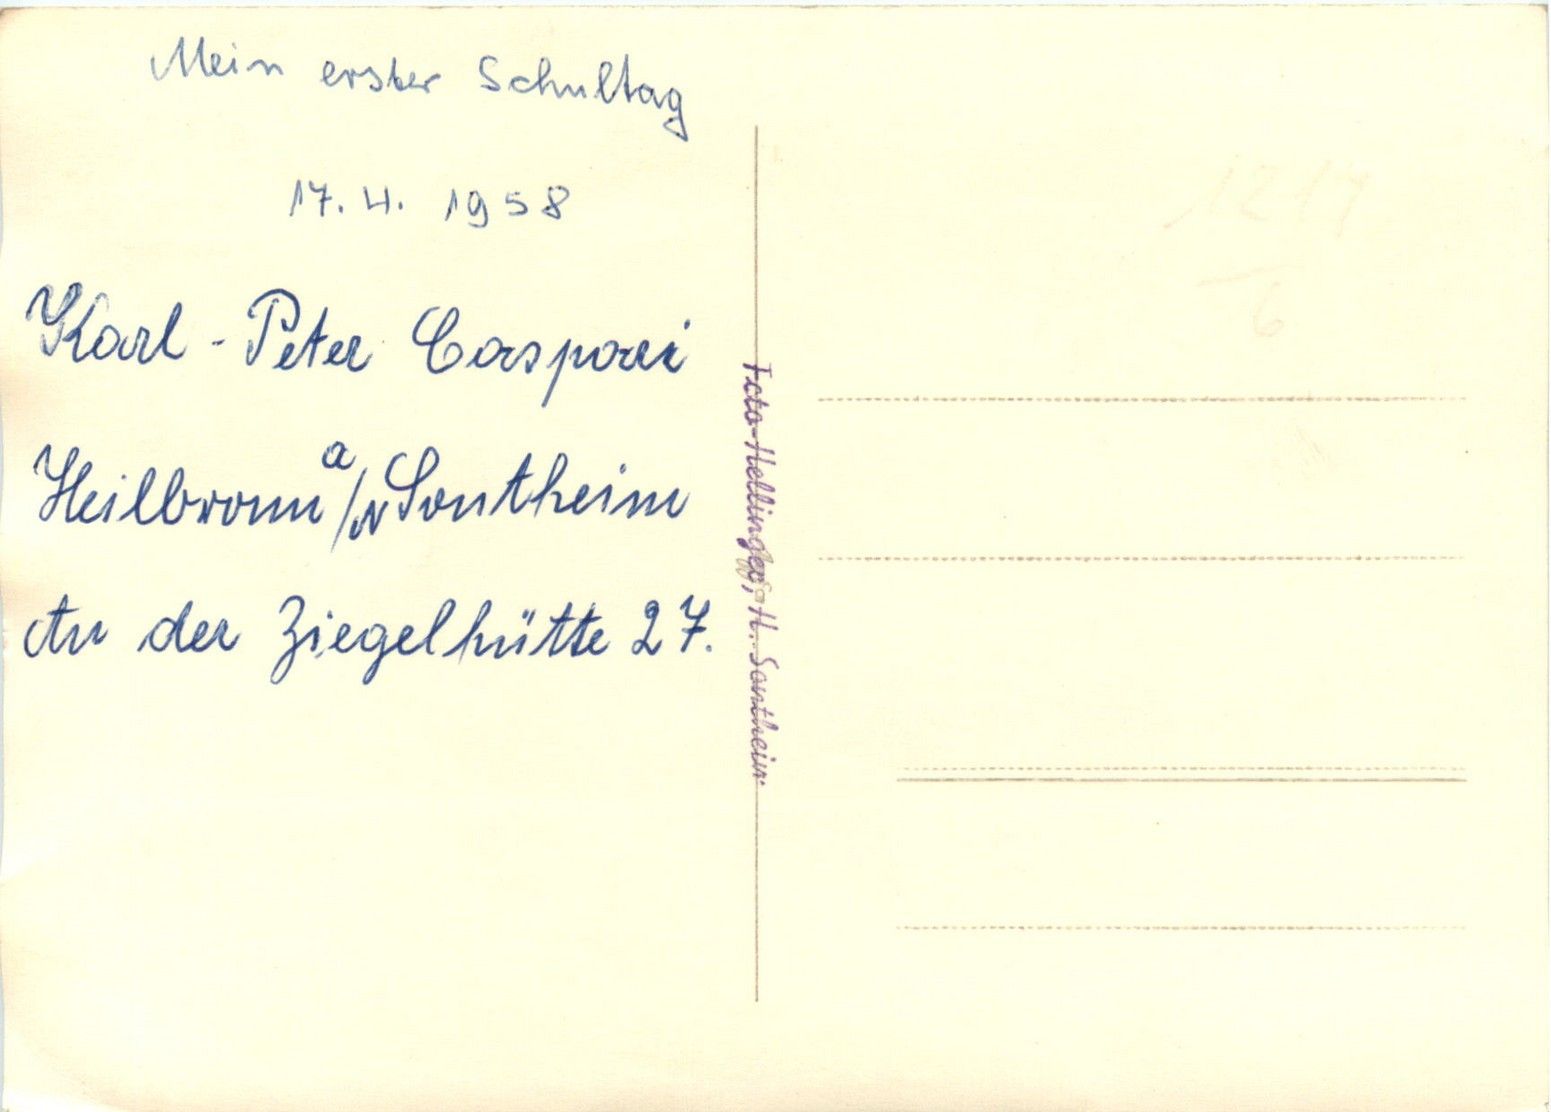 Mein erster Schultag
17.4. 1958
Karl-Peter Caspari
Heilbronn a/N Sontheim
An der Ziegelhütte 27.
Foto-Hellinger, H. Sontheim.
1217
6